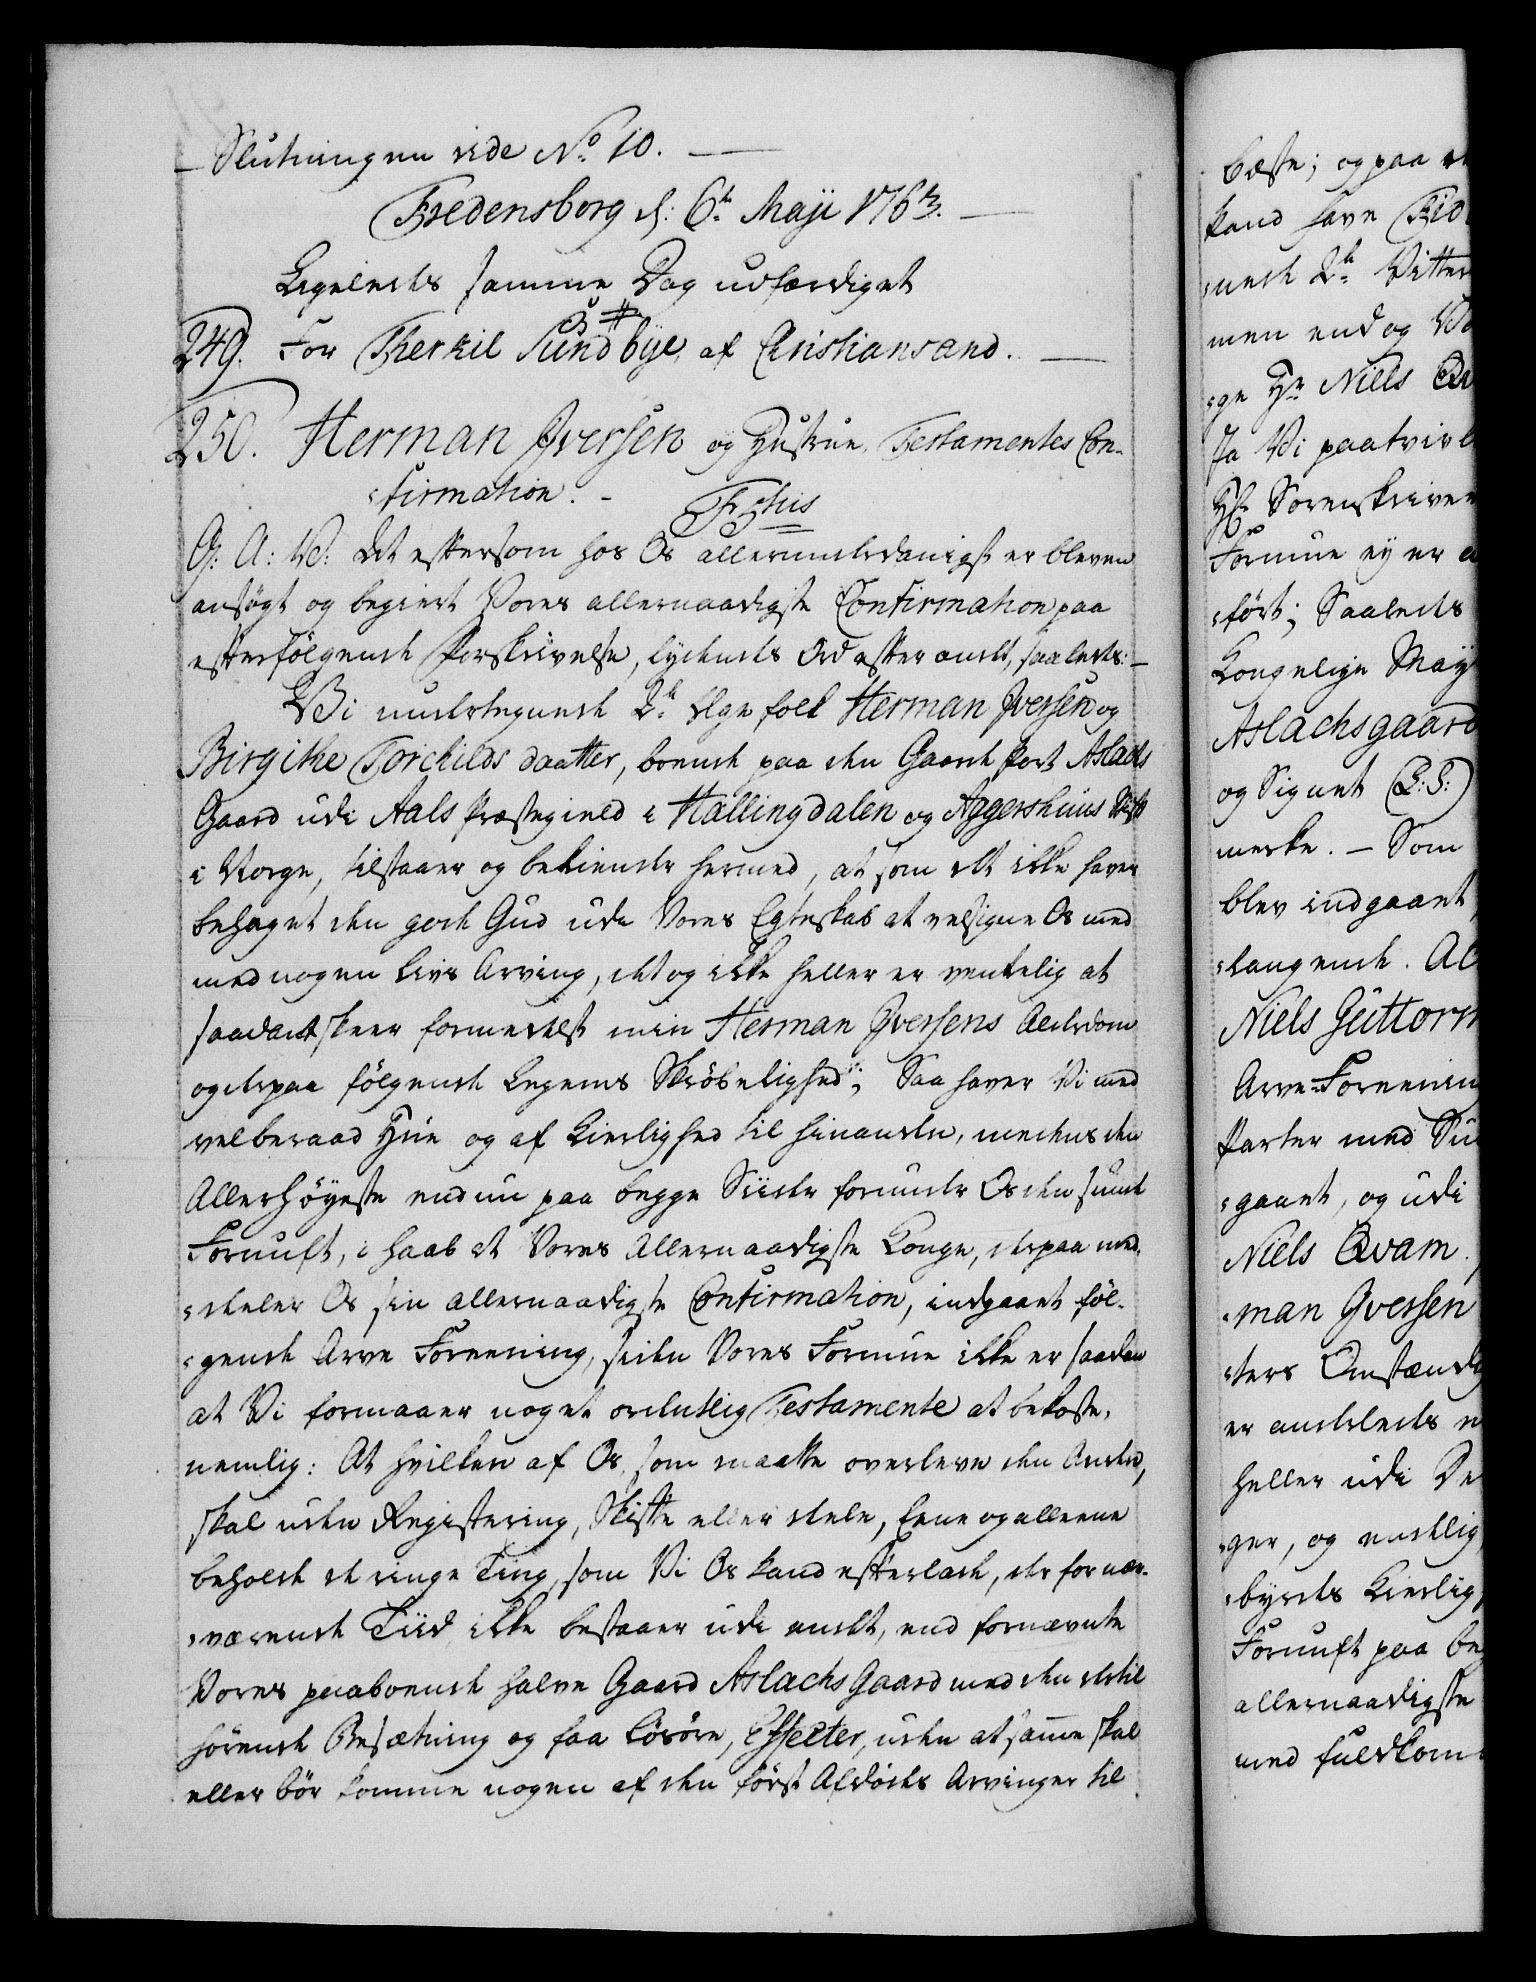 – Slutningen vide No 10. –
Fredensborg d: 6te Maji 1763. –
Ligeledes samme Dag udfærdiget
249. For Therkil Sundbye af Christiansand. –
250. Herman Iversen og Hustrue, Testamentes Con-
firmation. – Fgthiis
G: A: V: At eftersom hos Os allerunderdanigst er bleven
ansøgt og begiert Vores allernaadigste Confirmation paa
efterfølgende Forskrivelse, lydende Ord efter andet, saaledes: –
Vi underteignede 2de Ægte folk Herman Iversen og
Birgithe Torchilds daatter, boende paa den Gaard Part Aslachs
Gaard udi Aals Præstegield i Hallingdalen og Aggershuus Stift
i Norge, tilstaaer og bekiender hermed, at som det ikke haver
behaget den gode Gud udi Vores Egteskab at velsigne Os med
med nogen Livs Arving, det og ikke heller er ventelig at
saadant skeer formedelst min Herman Iversens Alderdom
og derpaa følgende Legems Skrøbelighed; Saa haver Vi med
velberaad Hue og af Kierlighed til hinanden, medens den
Allerhøyeste endnu paa begge Siider forunder Os den sunde
Fornuft, i haab at Vores Allernaadigste Konge, derpaa med-
deeler Os sin allernaadigste Confirmation, indgaaet føl-
gende Arve Foreening, siden Vores Formue ikke er saadan
at Vi formaaer noget ordentlig Testamente at bekoste,
nemlig: At hvilken af Os, som maatte overleve den Anden,
skal uden Registering, Skifte eller deele, Eene og alleene
beholde de ringe Ting, som Vi Os kand efterlade, der for nær-
værende Tiid ikke bestaaer udi andet, end fornævnte
Vores paaboende halve Gaard Aslachs Gaard med den dertil
hørende Besætning og faa Løsøre, Effecter, uden at samme skal
eller bør komme nogen af den først Afdødes Arvinger til
bæste; og paa
kand have Tid
nede 2de Vitter
men end og
ge Hr Niels
Ja Vi paatvivl
Sorenskriver
Formue ey er
ført; Saaledes
Kongelige May
Aslachsgaard
og Signet (L: S:)
merke. – Som
blev indgaaet,
langende. Al
Niels Guttorm
Arve-Foreenin
Parter med
gaaet, og udi
Niels Qvam.
man Iversen
ters Omstænd
er anderledes
heller udi De
ger, og endelig
byrdes Kierlig
Fornuft paa be
allernaadigste
med fuldkom